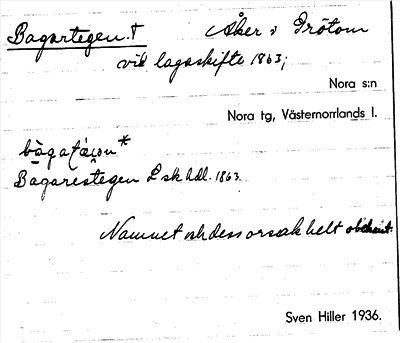 Bagartegen.† Åker i Grötom
vid lagaskifte 1863;
Nora s:n
Nora tg, Västernorrlands l.
Bagarestegen L sk hdl. 1863.
Namnet och dess orsak helt obekant.
Sven Hiller 1936.